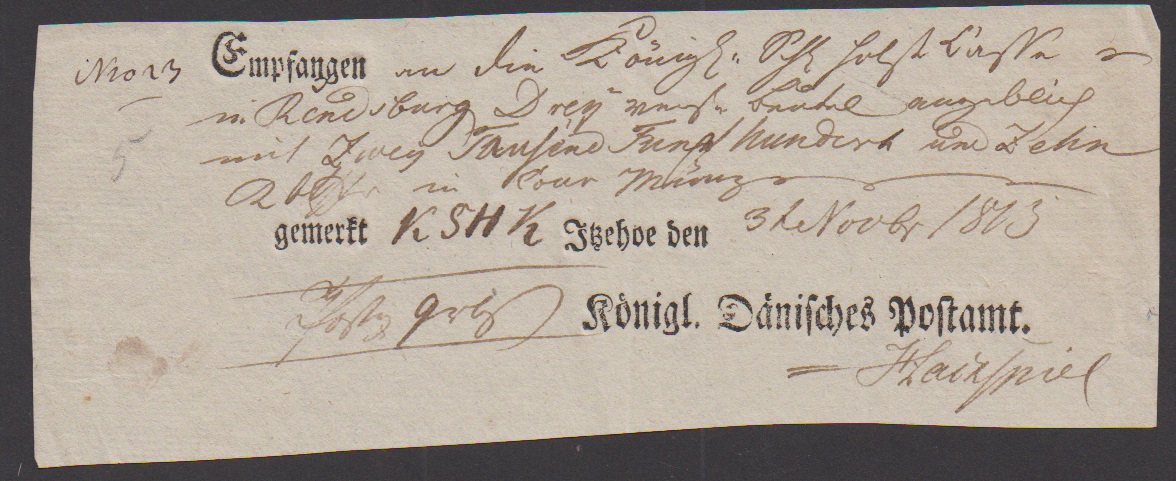 No 23 Empfangen an die Königl: Schl Holst Casse
in Rendsburg Drey Beutel angeblich
mit Zwey Tausend Funfhundert und Zehn
Rbthlr in Cour Münz
5
gemerkt K S H K Itzehoe den 3t Novbr 1813
Königl. Dänisches Postamt.